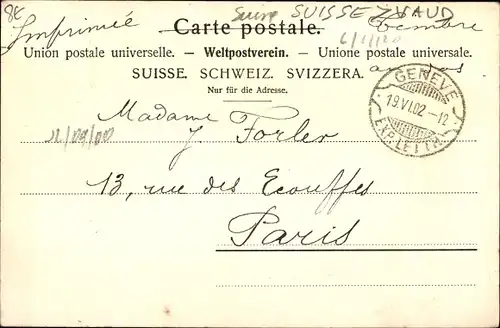 8€
Imprimée
Suisse SUISSE VAUD
Carte postale.
Timbre
au dos
Union postale universelle. – Weltpostverein. – Unione postale universale.
SUISSE. SCHWEIZ. SVIZZERA.
Nur für die Adresse.
GENÈVE
19.VI.02–12
EXP. LETTR.
Madame
J. Forler
13, rue des Ecouffes
Paris